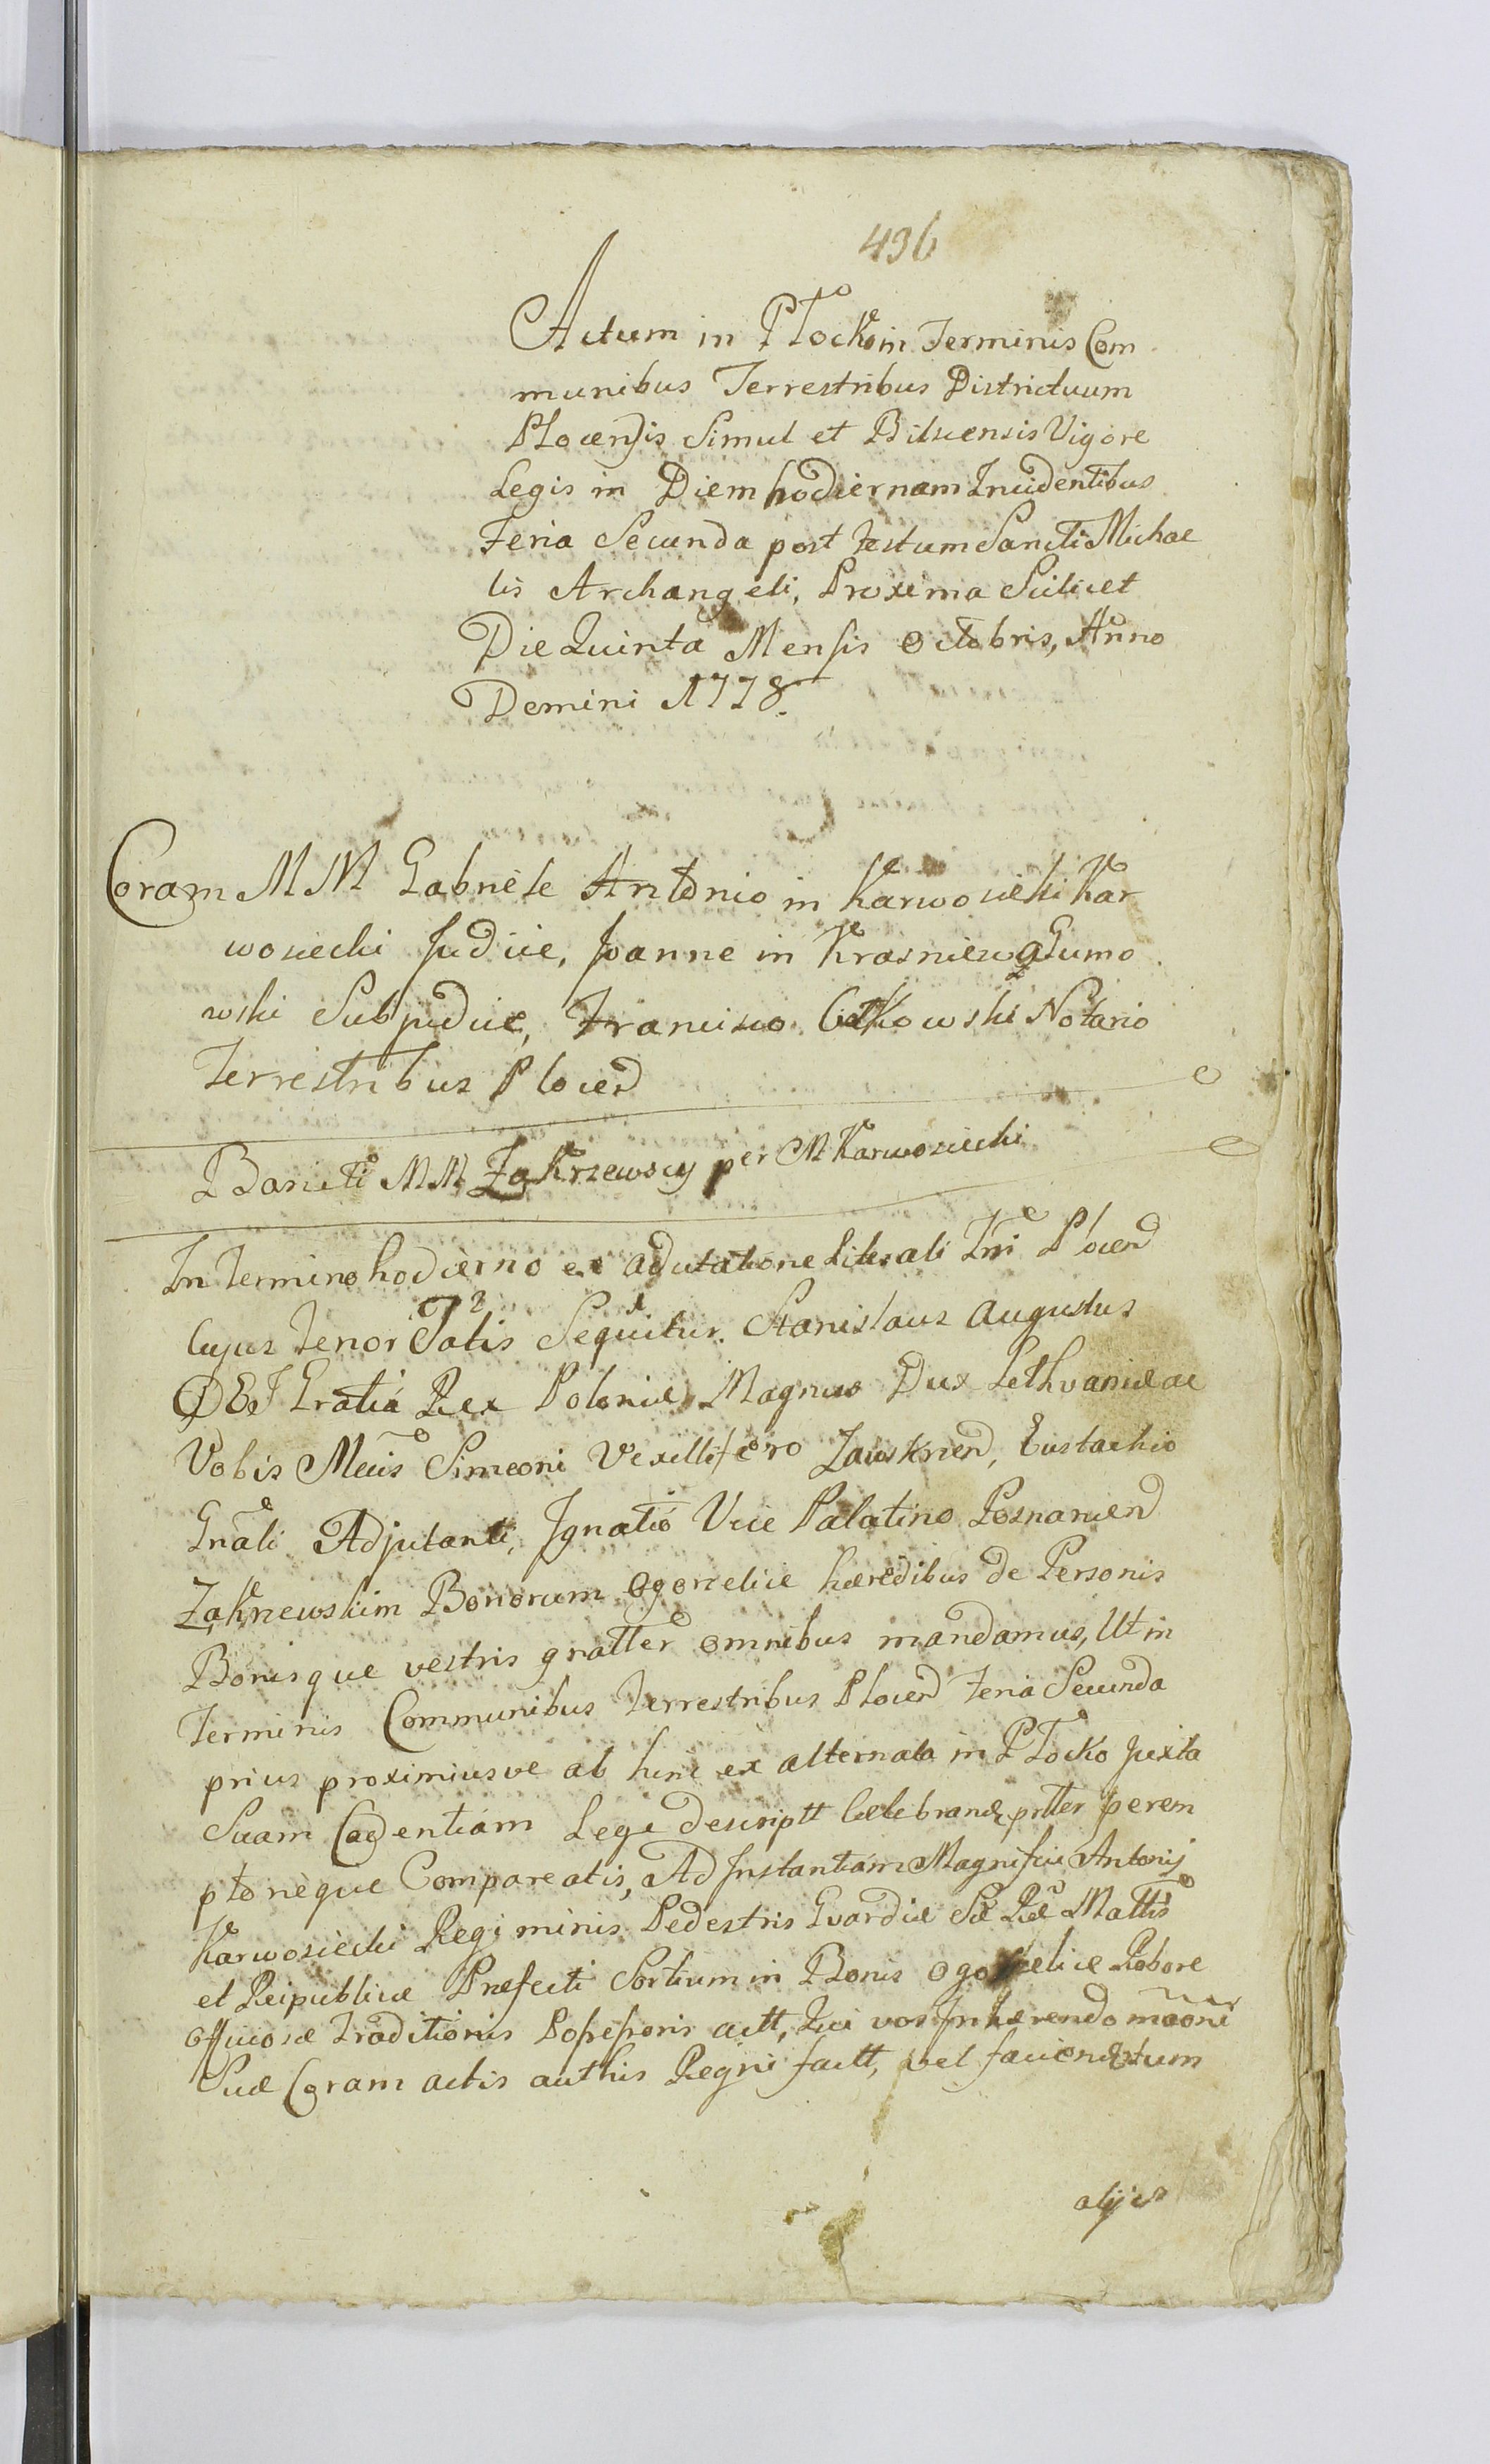 436
Actum in Płocko in Terminis Com
munibus Terrestribus Districtuum
Plocensis Simul et Bilscensis Vigore
Legis in Diem hodiernam Incidentibus
Feria Secunda post Festum Sancti Michae
lis Archangeli, Proxima Scilicet
Die Quinta Mensis Octobris, Anno
Domini 1778.
Coram MM Gabriele Antonio in Karwosieki Kar
wosiecki Judice, Joanne in Krasniewo Gumo
wski Subjudice, Francisco Ciółkowski Notario
Terrestribus Plocen
Baniti MM Zakrzewscy per M Karwosiecki
In Termino hodierno ex adcitatione Literali Trri Plocen
Cujus Tenor Talis Sequitur. Stanislaus Augustus
DEI Gratia Rex Poloniæ Magnus Dux Lithvaniæ ac
Vobis Mcis Simeoni Vexillifero Zawskrien, Eustachio
Gnali Adjutanti, Ignatio Vice Palatino Posnanien
Zakrzewskim Bonorum Ogorzelice hæredibus de Personis
Bonisque vestris gnalter omnibus mandamus, Ut in
Terminis Communibus Terrestribus Plocen Feria Secunda
prius proximiusve ab hinc ex alternata in Płocko Juxta
Suam Cadentiam Lege descriptt Celebrand pntter perem
ptorieque Compareatis, Ad Instantiam Magnifici Antonij
Karwosiecki Regiminis Pedestris Gvardiæ Sæ Ræ Mattis
et Reipublicæ Præfecti Sortium in Bonis Ogorzelice Robore
Officiosæ Traditionis Possessoris actt, Qui vos Inhærendo maoni
Suæ Coram actis authis Regni factt, vel faciend tum
alijs